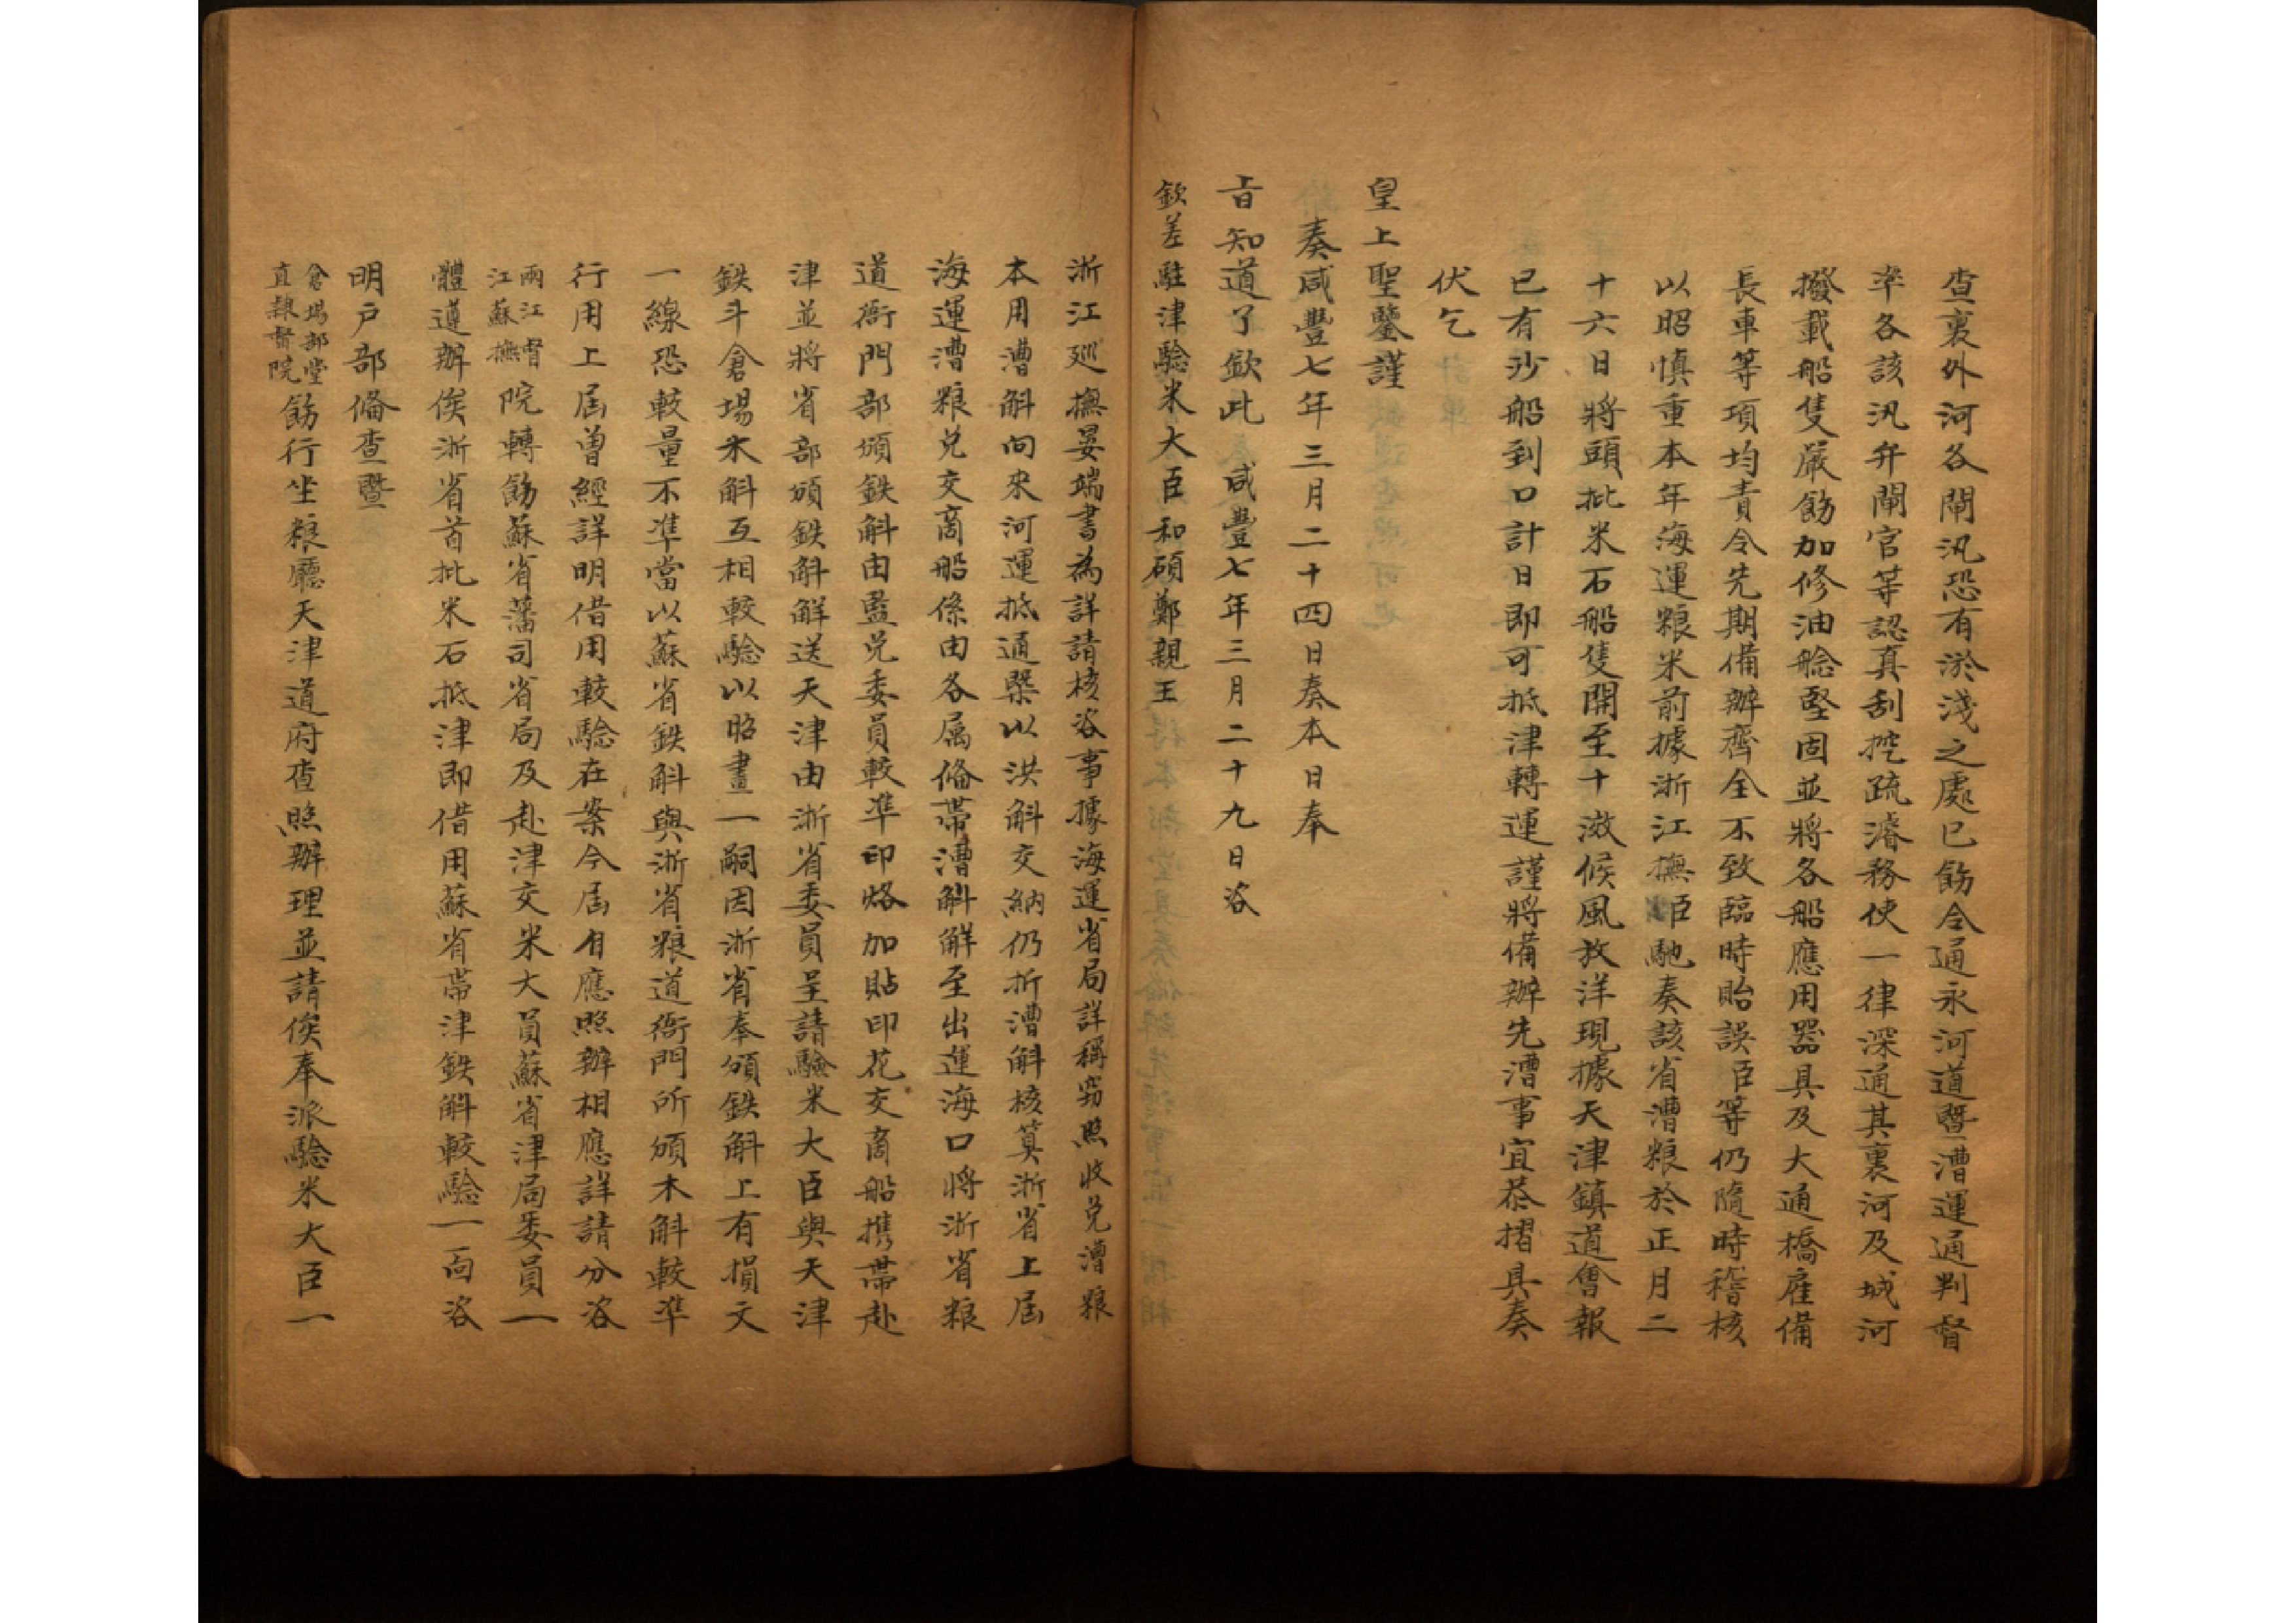 查裏外河各閘汛恐有淤淺之處已飭令通永河道暨漕運通判督
率各該汛弁閘官等認真刮挖疏濬務使一律深通其裏河及城河
撥載船隻嚴飭加修油艌堅固並將各船應用器具及大通橋雇備
長車等項均責令先期備辦齊全不致臨時貽誤臣等仍隨時稽核
以昭慎重本年海運粮米前據浙江撫臣馳奏該省漕粮於正月二
十六日將頭批米石船隻開至十滧候風放洋現據天津鎮道會報
已有沙船到口計日即可抵津轉運謹將備辦先漕事宜恭摺具奏
伏乞
皇上聖鑒謹
奏咸豐七年三月二十四日奏本日奉
旨知道了欽此 咸豐七年三月二十九日咨
欽差駐津驗米大臣和碩鄭親王
浙江廵撫晏端書為詳請核咨事據海運省局詳稱竊照收兑漕粮
本用漕斛向來河運抵通槩以洪斛交納仍折漕斛核算浙省上屆
海運漕粮兑交商船係由各属偹帶漕斛觧至出運海口將浙省粮
道衙門部頒鉄斛由監兑委員較準印烙加貼印花交商船携帶赴
津並將省部頒鉄斛觧送天津由浙省委員呈請驗米大臣與天津
鉄斗倉場木斛互相較驗以昭畫一嗣因浙省奉頒鉄斛上有損文
一線恐較量不準當以蘇省鉄斛與浙省粮道衙門所頒木斛較準
行用上屆曾經詳明借用較驗在案今屆自應照辦相應詳請分咨
兩江督江蘇撫院轉飭蘇省藩司省局及赴津交米大員蘇省津局委員一
體遵辦俟浙省首批米石抵津即借用蘇省帶津鉄斛較驗一面咨
明戶部偹查暨
倉場部堂直隸督院飭行坐粮廳天津道府查照辦理並請俟奉派驗米大臣一